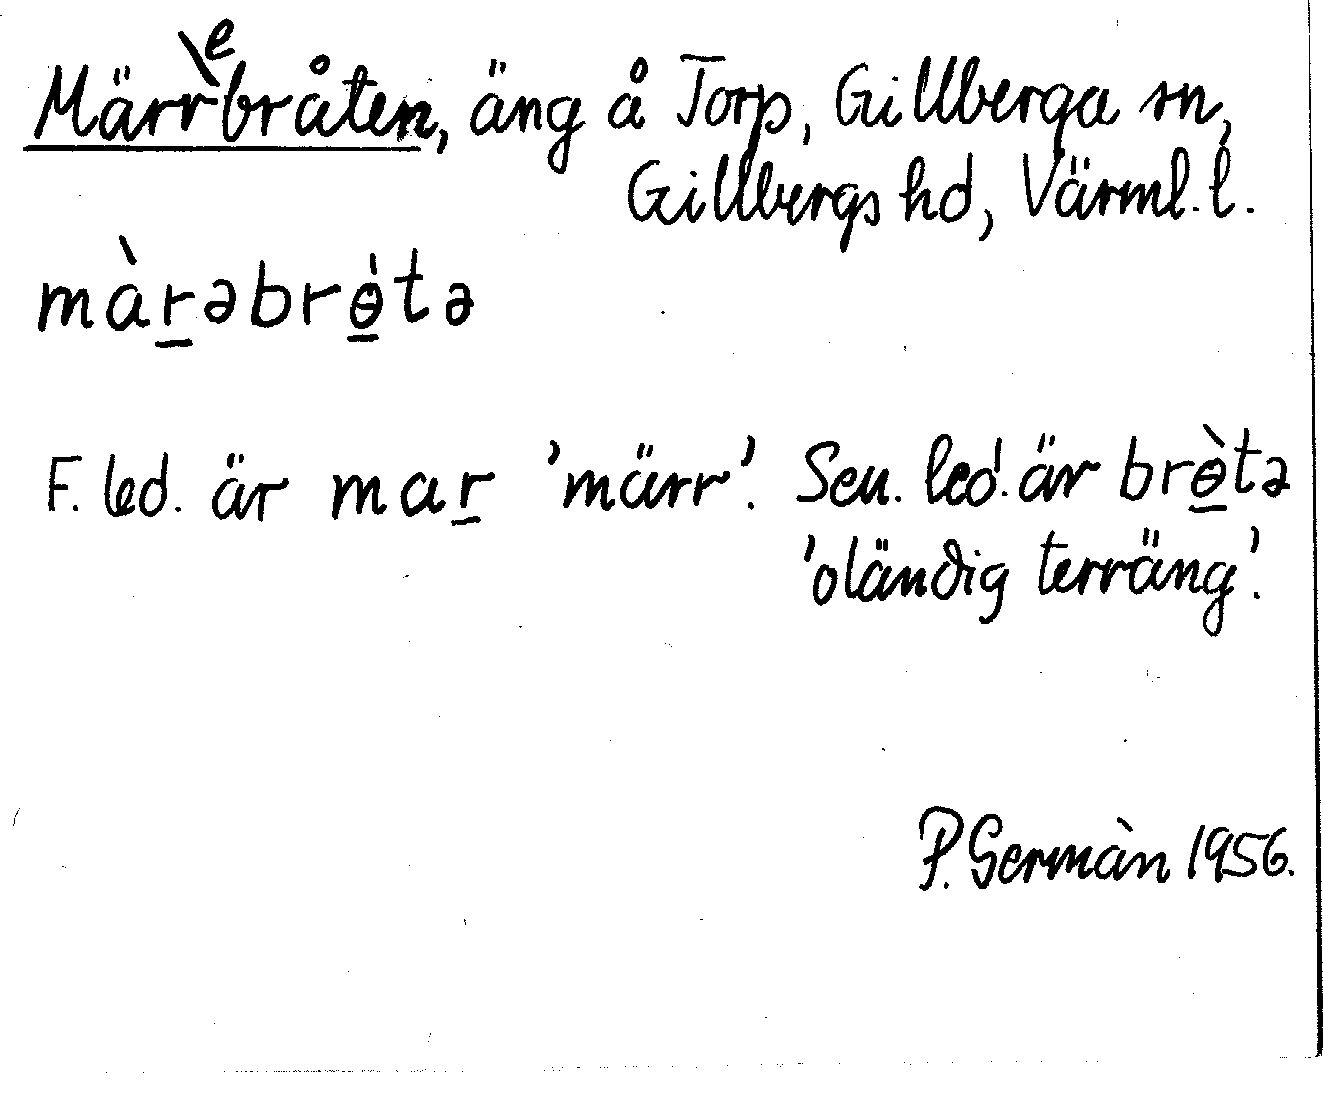 Märrebråten, äng å Torp, Gillberga sn,
Gillbergs hd, Värml. l.
màr̲əbrɵ̲̀tə
F. led. är mar̲ 'märr'. Sen. led. är brɵ̲̀tə
'oländig terräng'.
P. Germàn 1956.